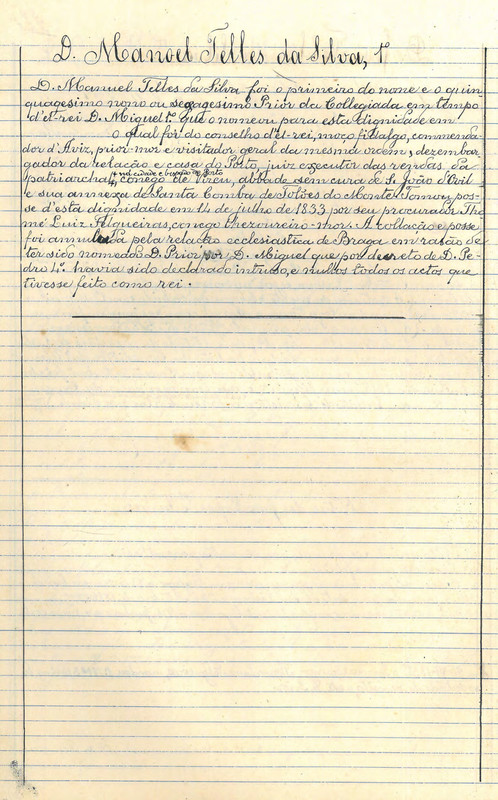 D. Manoel Telles da Silva, 1º
D. Manuel Telles da Silva foi o primeiro do nome e o quin-
quagesimo nono ou segagesimo Prior da Collegiada em tempo
d'el-rei D. Miguel 1.º que o nomeou para esta dignidade em
o qual foi do conselho d'el-rei, moço fidalgo, commenda-
dor d'Aviz, prior-mor e visitador geral da mesma ordem, dezembar-
gador da relação e casa do Porto, juiz executor das rendas da
patriarchal, n'esta cidade e bispado do Porto
conego de Vizeu, abbade sem cura de S. João d'Ovil
e sua annexa de Santa Comba de Tolões do Monte. Tomou pos-
se d'esta dignidade em 14 de julho de 1833 por seu procurador Tho-
mé Luiz Falgueiras, conego thezoureiro-mor. A collação e posse
foi annullada pela relação ecclesiastica de Braga em rasão de
ter sido nomeado D. Prior por D. Miguel que por decreto de D. Pe-
dro 4.º havia sido declarado intruso, e nullos todos os actos que
tivesse feito como rei.